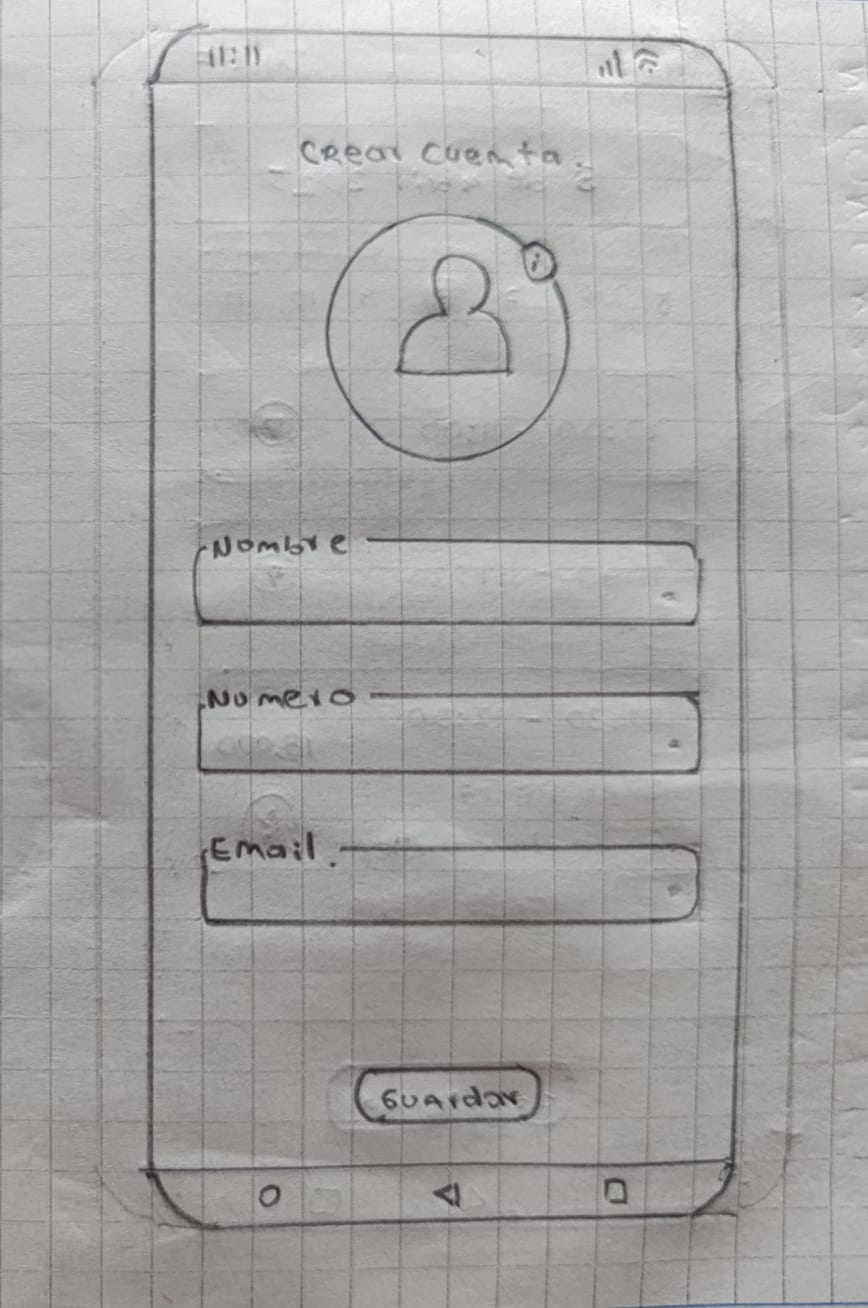 11:11
Crear cuenta.
i
Nombre
Numero
Email.
Guardar